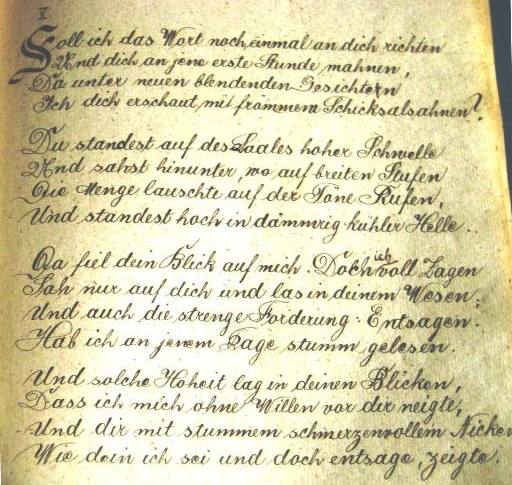 V
Soll ich das Wort noch einmal an dich richten
Und dich an jene erste Stunde mahnen,
Da unter neuen blendenden Gesichtern
Ich dich erschaut mit frommem Schicksalsahnen?
Du standest auf des Saales hoher Schwelle
Und sahst hinunter, wo auf breiten Stufen
Die Menge lauschte auf der Töne Rufen,
Und standest hoch in dämmrig kühler Helle..
Da fiel dein Blick auf mich. Doch ich voll Zagen
Sah nur auf dich und las in deinem Wesen;
Und auch die strenge Forderung: Entsagen.
Hab ich an jenem Tage stumm gelesen.
Und solche Hoheit lag in deinen Blicken,
Dass ich mich ohne Willen vor dir neigte,
Und dir mit stummem schmerzenvollem Nicken
Wie dein ich sei und doch entsage, zeigte.